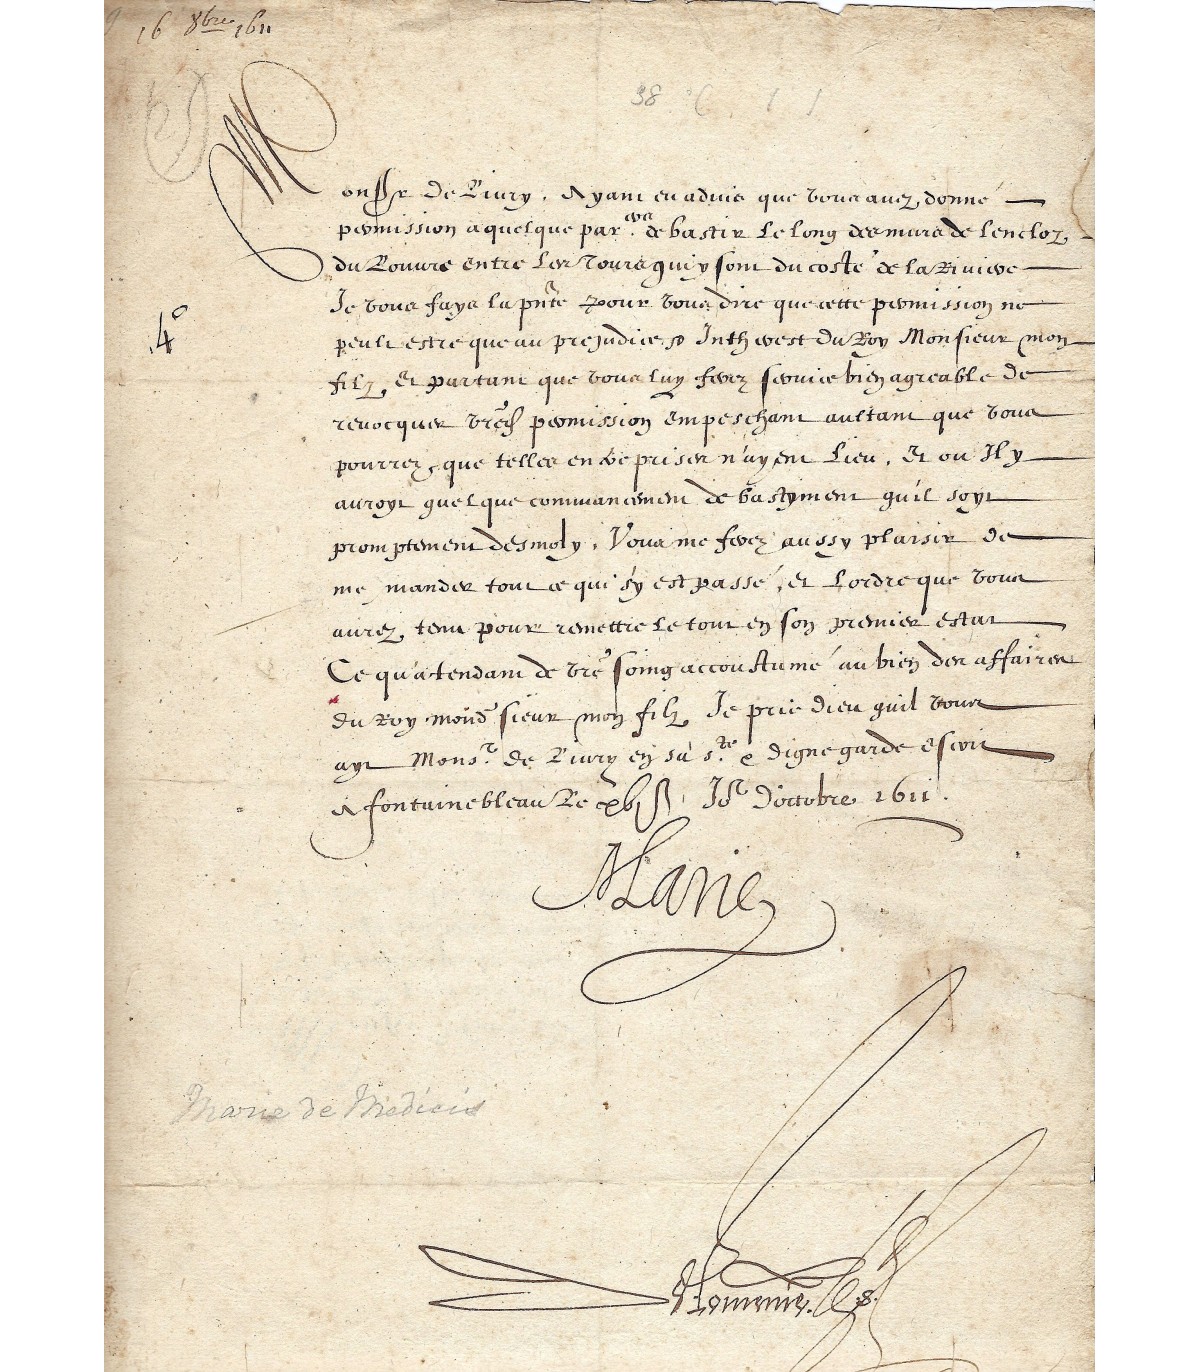 16 8bre 1611
38
Monsr de Liury, Ayant eu aduis que vous auez donné
permission a quelque parers de bastir le long des murs de lencloz
du Louure entre les tours quy y sont du costé de la Riuiere
Je vous fays la pnte pour vous dire que cette permission ne
peult estre que au prejudice & Intherest du Roy Monsieur mon
filz, Et partant que vous luy ferez seruice bien agreable de
reuocquer vred permission empeschant aultant que vous
pourrez, que telles entreprises n'ayent lieu, Et ou Il y
auroyt quelque commancement de bastyment qu'il soyt
promptement desmoly, Vous me ferez aussy plaisir de
me mander tout ce qui s'y est passé, et l'ordre que vous
aurez tenu pour remettre le tout en son premier estat
Ce qu'atendant de vre soing accoustumé au bien des affaires
du Roy mond sieur mon filz Je prie dieu quil vous
ayt Monsr. de Liury en sa ste & digne garde escrit
A fontainebleau Le xbj Jor d'octobre 1611.
4o
Marie
Marie de Médicis
De Lomenie.